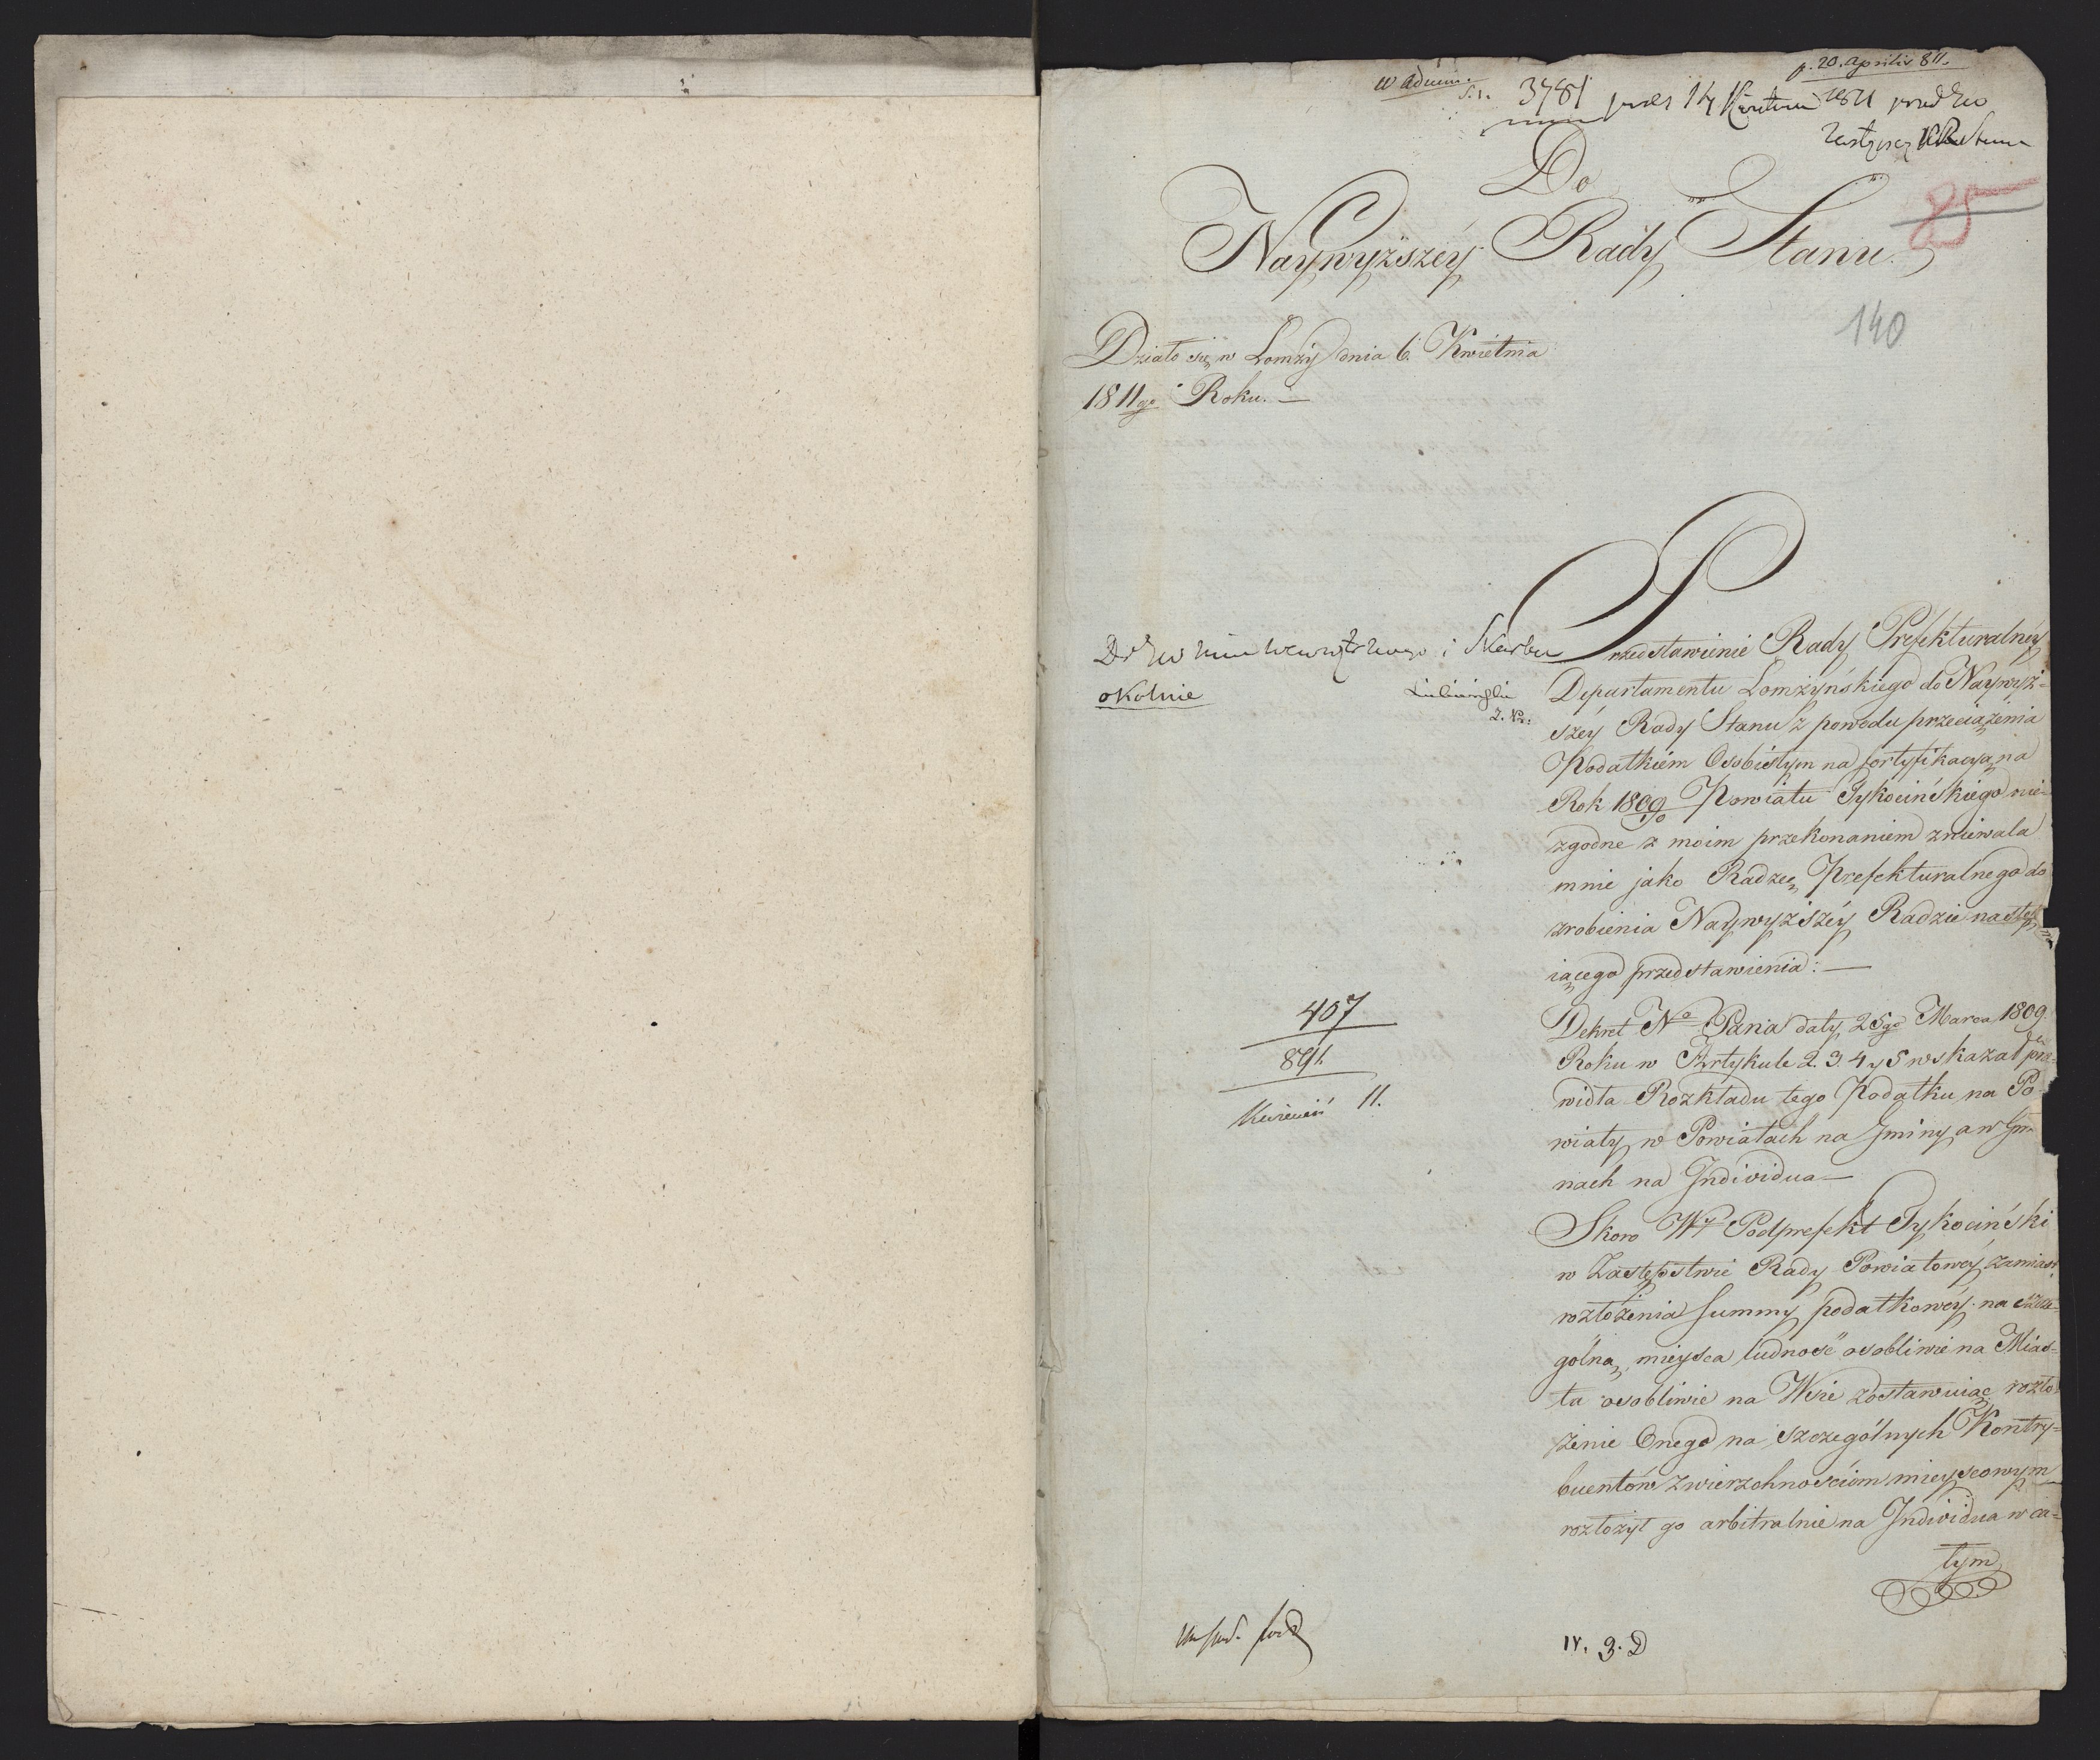 p. 20. Aprilis 811.
w Admin.
3781
Do
Naywyższéy Rady Stanu.
85
140
Działo się w Łomży dnia 6. Kwietnia
1811go Roku. —
i Skarbu
okolnie
Przedstawienie Rady Prefekturalnéy
Departamentu Łomżyńskiego do Naywyż=
széy Rady Stanu z powodu przeciążenia
Podatkiem Osobistym na fortyfikacyą na
Rok 1809/10 Powiatu Tykocińskiego nie=
zgodne z moim przekonaniem zniewala
mnie jako Radzcę Prefekturalnego do
zrobienia Naywyższéy Radzie nastę=
iącego przedstawienia: —
407
891.
Kwiecień 11.
Dekret No Pana daty 25go Marca 1809.
Roku w Artykule 2. 3. 4 y 5 wskazał pra=
widła Rozkładu tego Podatku na Po=
wiaty, w Powiatach na Gminy a w Gmi
nach na Individua —
Skoro Wy Podprefekt Tykociński
w Zastępstwie Rady Powiatowéy zamiast
rozłożenia summy podatkowéy na szcze=
gólną mieysca ludność osobliwie na Mias=
ta osobliwie na Wsie zostawuiąc rozło
żenie Onego na szczególnych Kontry=
buentów zwierzchnościom mieyscowym
rozłożył go arbitralnie na Individua w ca=
łym